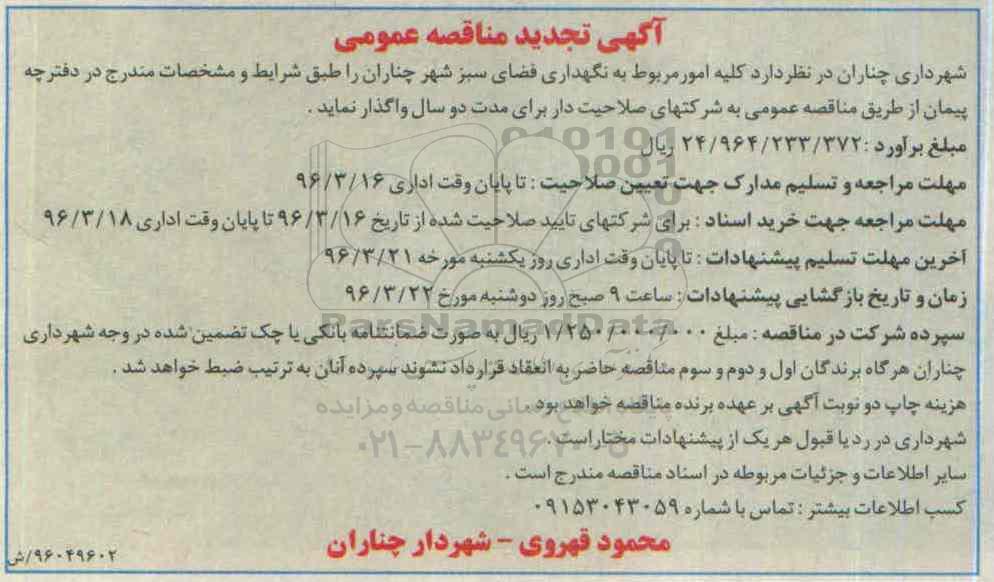 آگهی تجدید مناقصه عمومی
شهرداری چناران در نظر دارد کلیه امور مربوط به نگهداری فضای سبز شهر چناران را طبق شرایط و مشخصات مندرج در دفترچه
پیمان از طریق مناقصه عمومی به شرکتهای صلاحیت دار برای مدت دو سال واگذار نماید .
مبلغ برآورد : ۲۴/۹۶۴/۲۳۳/۳۷۲ ریال
مهلت مراجعه و تسلیم مدارک جهت تعیین صلاحیت : تا پایان وقت اداری ۹۶/۳/۱۶
مهلت مراجعه جهت خرید اسناد : برای شرکتهای تایید صلاحیت شده از تاریخ ۹۶/۳/۱۶ تا پایان وقت اداری ۹۶/۳/۱۸
آخرین مهلت تسلیم پیشنهادات : تا پایان وقت اداری روز یکشنبه مورخه ۹۶/۳/۲۱
زمان و تاریخ بازگشایی پیشنهادات : ساعت ۹ صبح روز دوشنبه مورخ ۹۶/۳/۲۲
سپرده شرکت در مناقصه : مبلغ ۱/۲۵۰/۰۰۰/۰۰۰ ریال به صورت ضمانتنامه بانکی یا چک تضمین شده در وجه شهرداری
چناران هر گاه برندگان اول و دوم و سوم مناقصه حاضر به انعقاد قرارداد نشوند سپرده آنان به ترتیب ضبط خواهد شد .
هزینه چاپ دو نوبت آگهی بر عهده برنده مناقصه خواهد بود .
شهرداری در رد یا قبول هر یک از پیشنهادات مختار است .
سایر اطلاعات و جزئیات مربوطه در اسناد مناقصه مندرج است .
کسب اطلاعات بیشتر : تماس با شماره ۰۹۱۵۳۰۴۳۰۵۹
محمود قهروی - شهردار چناران
۹۶۰۴۹۶۰۲/ش
ParsNamadData
۰۲۱-۸۸۳۴۹۶۷۰-۵